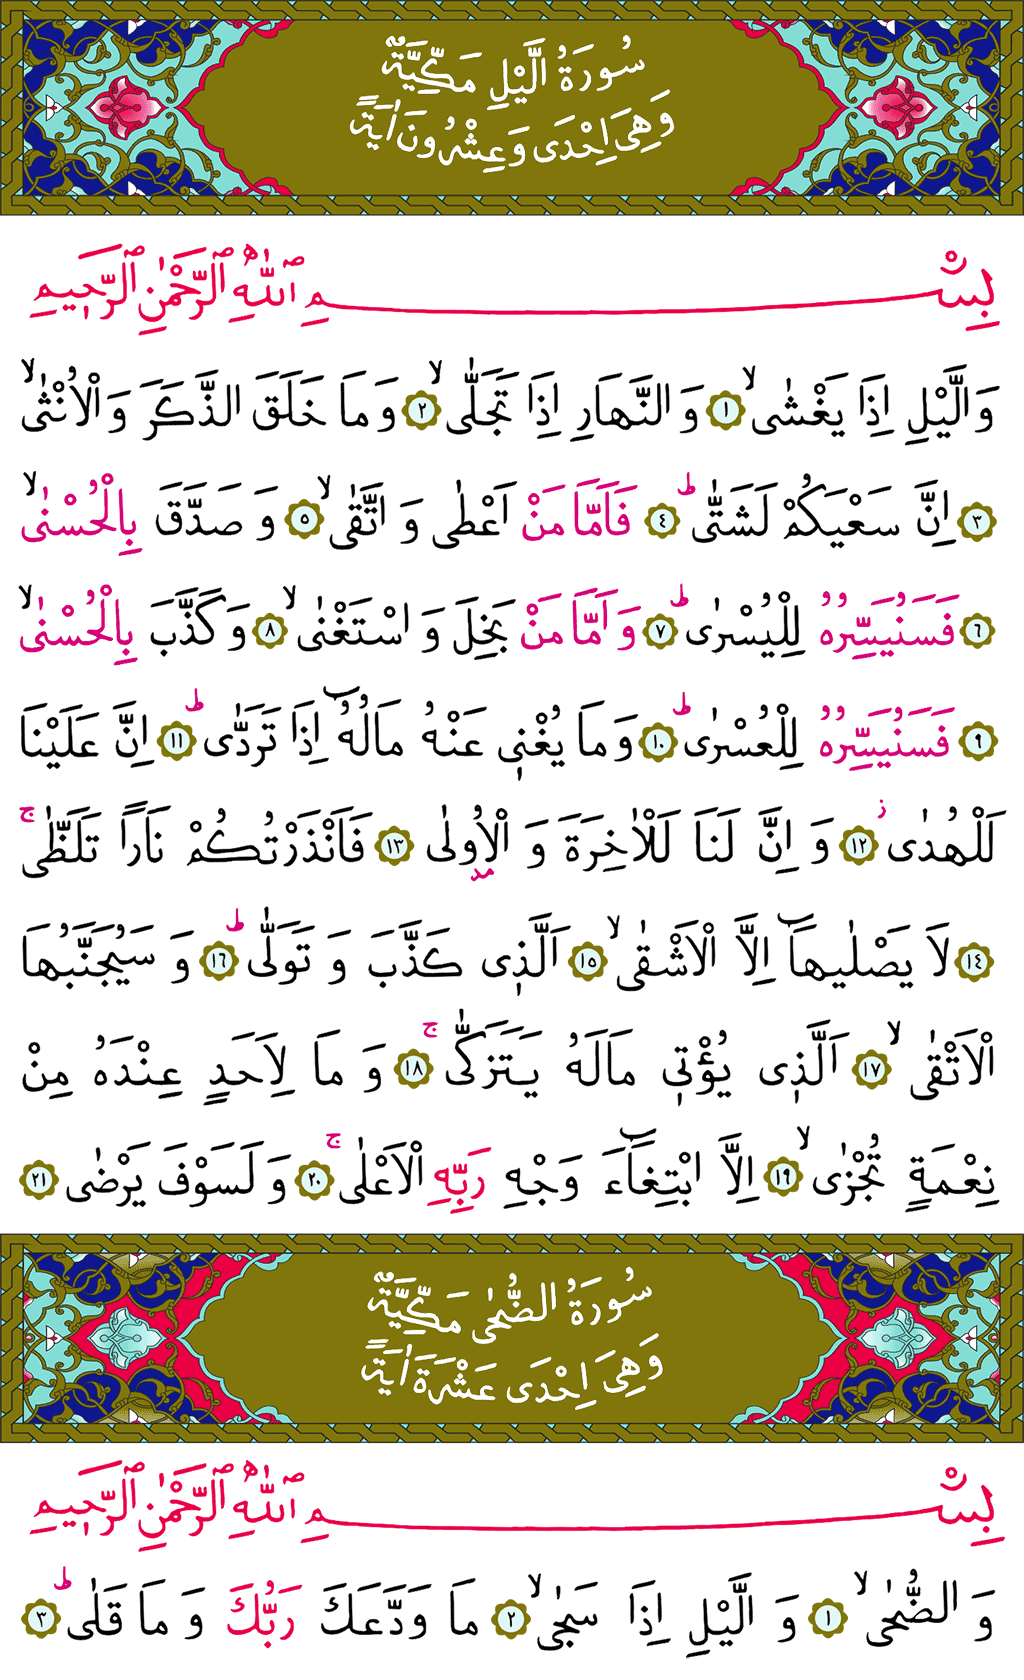 سُورَةُ الَّيْلِ مَكِّيَّةٌ
وَهِيَ اِحْدَى وَعِشْرُونَ اٰيَةً
بِسْمِ اللّٰهِ الرَّحْمٰنِ الرَّحٖيمِ
وَالَّيْلِ اِذَا يَغْشٰىۙ ﴿١﴾ وَالنَّهَارِ اِذَا تَجَلّٰىۙ ﴿٢﴾ وَمَا خَلَقَ الذَّكَرَ وَالْاُنْثٰىۙ
﴿٣﴾ اِنَّ سَعْيَكُمْ لَشَتّٰىؕ ﴿٤﴾ فَاَمَّا مَنْ اَعْطٰى وَاتَّقٰىۙ ﴿٥﴾ وَصَدَّقَ بِالْحُسْنٰىۙ
﴿٦﴾ فَسَنُيَسِّرُهُ لِلْيُسْرٰىؕ ﴿٧﴾ وَاَمَّا مَنْ بَخِلَ وَاسْتَغْنٰىۙ ﴿٨﴾ وَكَذَّبَ بِالْحُسْنٰىۙ
﴿٩﴾ فَسَنُيَسِّرُهُ لِلْعُسْرٰىؕ ﴿١٠﴾ وَمَا يُغْنٖى عَنْهُ مَالُهُٓ اِذَا تَرَدّٰىؕ ﴿١١﴾ اِنَّ عَلَيْنَا
لَلْهُدٰىؗ ﴿١٢﴾ وَاِنَّ لَنَا لَلْاٰخِرَةَ وَالْاُو۫لٰى ﴿١٣﴾ فَاَنْذَرْتُكُمْ نَارًا تَلَظّٰىۚ
﴿١٤﴾ لَا يَصْلٰيهَٓا اِلَّا الْاَشْقٰىۙ ﴿١٥﴾ اَلَّذٖى كَذَّبَ وَتَوَلّٰىؕ ﴿١٦﴾ وَسَيُجَنَّبُهَا
الْاَتْقٰىۙ ﴿١٧﴾ اَلَّذٖى يُؤْتٖى مَالَهُ يَتَزَكّٰىۚ ﴿١٨﴾ وَمَا لِاَحَدٍ عِنْدَهُ مِنْ
نِعْمَةٍ تُجْزٰىۙ ﴿١٩﴾ اِلَّا ابْتِغَٓاءَ وَجْهِ رَبِّهِ الْاَعْلٰىۚ ﴿٢٠﴾ وَلَسَوْفَ يَرْضٰى ﴿٢١﴾
سُورَةُ الضُّحٰى مَكِّيَّةٌ
وَهِيَ اِحْدَى عَشْرَةَ اٰيَةً
بِسْمِ اللّٰهِ الرَّحْمٰنِ الرَّحٖيمِ
وَالضُّحٰىۙ ﴿١﴾ وَالَّيْلِ اِذَا سَجٰىۙ ﴿٢﴾ مَا وَدَّعَكَ رَبُّكَ وَمَا قَلٰىؕ ﴿٣﴾